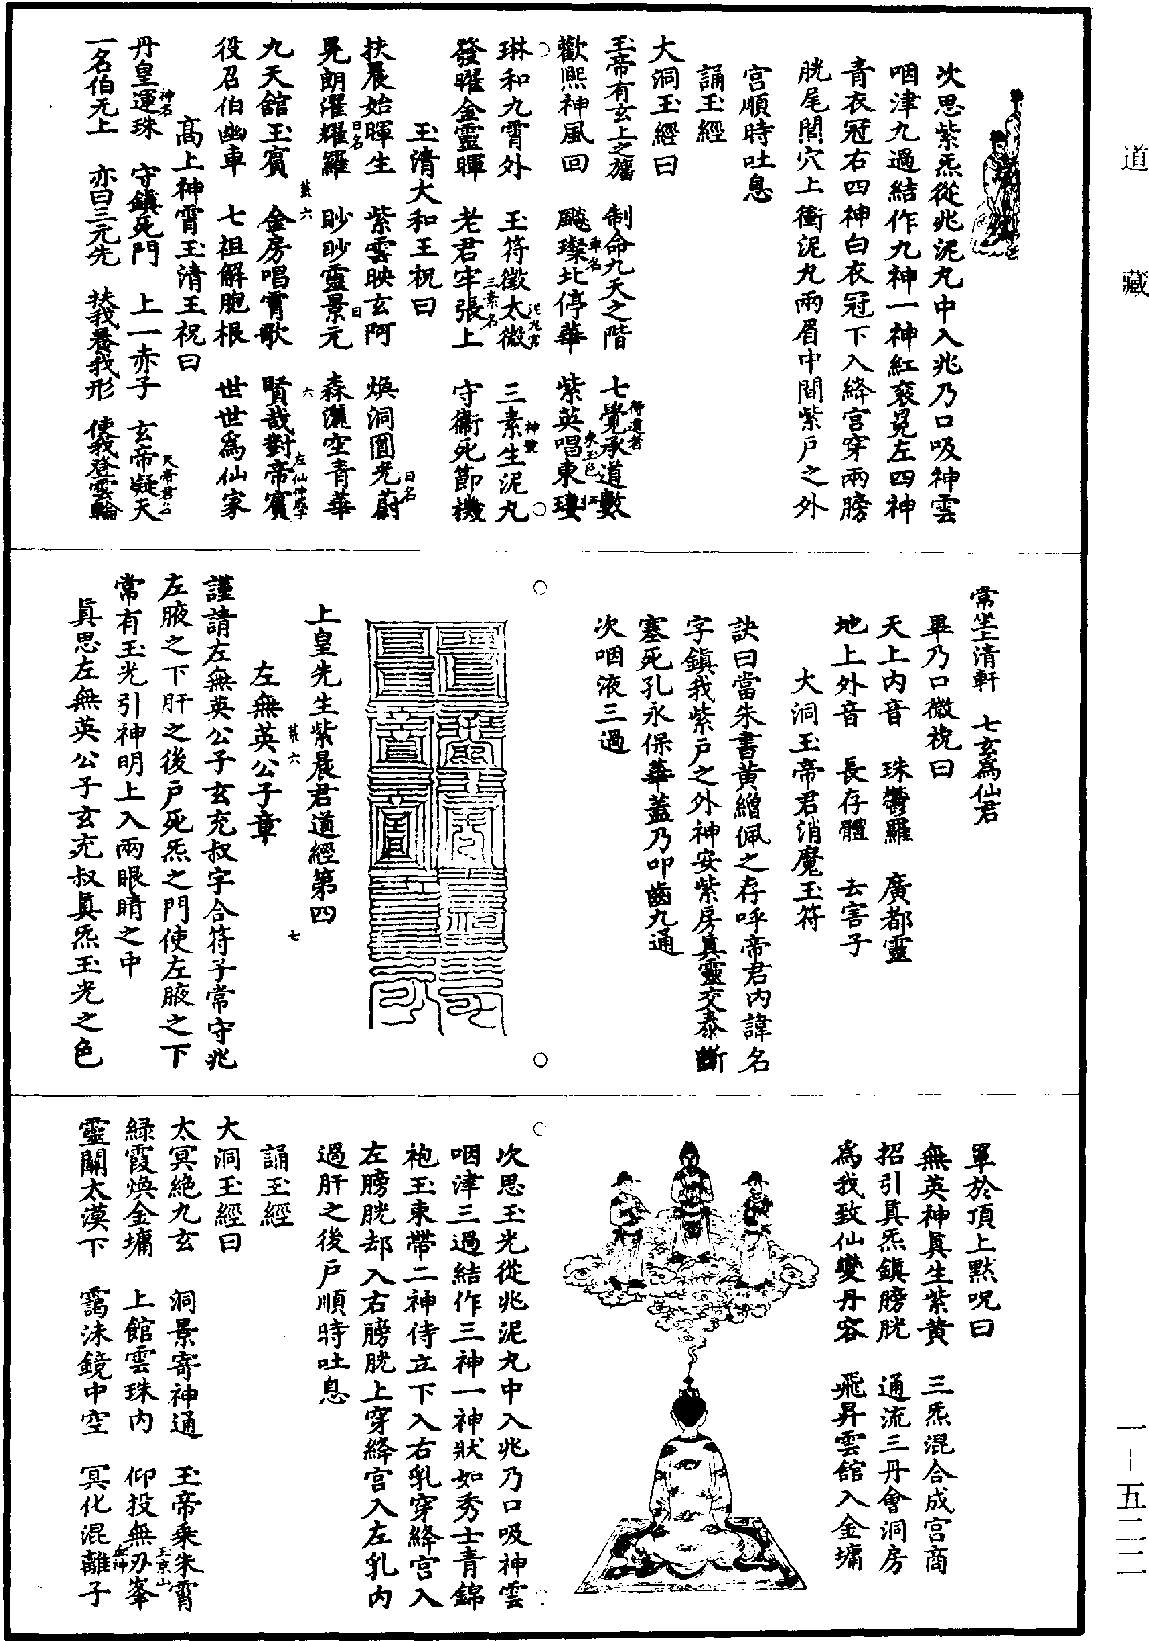 道藏
一—五二二
次思紫炁從兆泥丸中入兆乃口吸神雲
咽津九過結作九神一神紅衮冕左四神
青衣冠右四神白衣冠下入絳宮穿兩膀
胱尾閭穴上衝泥丸兩眉中間紫戶之外
宮順時吐息
誦玉經
大洞玉經曰
玉帝有玄上之旛 制命九天之階 七覺承道數
歡熈神風回 飈璨北停華 紫英唱東瓊
琳和九霄外 玉符徵太微 三素生泥丸
發曜金靈暉 老君牢張上 守衞死節機
玉清大和王祝曰
扶晨始暉生 紫雲映玄阿 煥洞圓光蔚
晃朗濯耀羅 眇眇靈景元 森灑空青華
九天館玉賓 金房唱霄歌 賢哉對帝賓
役召伯幽車 七祖解胞根 世世爲仙家
高上神霄玉清王祝曰
丹皇運珠 守鎮死門 上一赤子 玄帝凝天
一名伯无上 亦曰三元先 扶我養我形 使我登雲輪
常坐上清軒 七玄爲仙君
畢乃口微祝曰
天上内音 珠鬱羅 廣都靈
地上外音 長存體 去害子
大洞玉帝君消魔玉符
訣曰當朱書黄繒佩之存呼帝君内諱名
字鎮我紫戶之外神安紫房真靈交泰斷
塞死孔永保華蓋乃叩齒九通
次咽液三過
上皇先生紫晨君道經第四
左無英公子章
謹請左無英公子玄充叔字合符子常守兆
左腋之下肝之後戶死炁之門使左腋之下
常有玉光引神明上入兩眼睛之中
真思左無英公子玄充叔真炁玉光之色
罩於頂上默呪曰
無英神真生紫黄 三炁混合成宮商
招引真炁鎮膀胱 通流三丹會洞房
爲我致仙變丹容 飛昇雲館入金墉
次思玉光從兆泥丸中入兆乃口吸神雲
咽津三過結作三神一神狀如秀士青錦
袍玉束帶二神侍立下入右乳穿絳宮入
左膀胱却入右膀胱上穿絳宮入左乳内
過肝之後戶順時吐息
誦玉經
大洞玉經曰
太冥絶九玄 洞景寄神通 玉帝乘朱霄
緑霞煥金墉 上館雲珠内 仰投無刃峯
靈關太漠下 靄沫鏡中空 冥化混離子